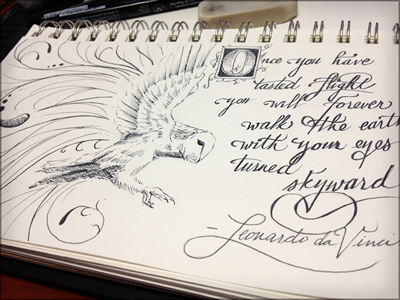 Once you have
tasted flight
you will forever
walk the earth
with your eyes
turned
skyward
- Leonardo da Vinci